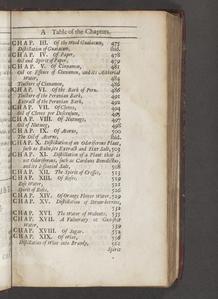 A Table of the Chapters.
CHAP. III. Of the Wood Guaiacum, 475
Distillation of Guaiacum, ibid.
CHAP. IV. Of Paper, 478
Oil and Spirit of Paper, 479
CHAP. V. Of Cinnamon, 481
Oil or Essence of Cinnamon, and its Ætherial
Water, 484
Tincture of Cinnamon, 486
CHAP. VI. Of the Bark of Peru, 486
Tincture of the Peruvian Bark, 491
Extract of the Peruvian Bark, 492
CHAP. VII. Of Cloves,
Oil of Cloves per Descensum, 495
CHAP. VIII. Of Nutmegs, 497
Oil of Nutmegs, 498
CHAP. IX. Of Acorus, 500
The Oil of Acorus, ibid.
CHAP. X. Distillation of an Odoriferous Plant,
such as Balm, its Extract and fixt Salt, 503
CHAP. XI. Distillation of a Plant that is
not Odoriferous, such as Carduus Benedictus,
and its Essential Salt, 508
CHAP. XII. The Spirit of Cresses, 515
CHAP. XIII. Of Roses,
Rose Water,
Spirit of Roses,
CHAP. XIV. Of Orange Flower Water, 529
CHAP. XV. Distillation of Strawberries,
CHAP. XVI. The Water of Walnuts, 535
CHAP. XVII. A Vulnerary or Gun-shot
Water, 539
CHAP. XVIII. Of Sugar, 554
CHAP. XIX. Of Wine, 558
Distillation of Wine into Brandy, 562
Spirit